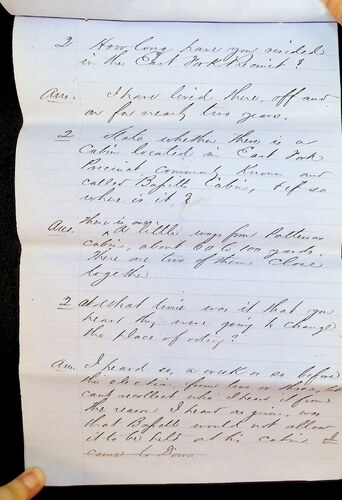 Q How long have you resided
in the East York Precinct?
Ans. I have lived there, off and
on for nearly two years.
Q State whether there is a
Cabin located in East York
Precinct commonly known and
called Bofelle Cabin, & if so
where is it?
there is one
Ans. A little ways from Pattersons
cabin, about 60 to 100 yards.
There are two of them close
together
Q At What time was it that you
heard they were going to change
the place of voting?
Ans. I heard it, a week or so before
the election, from two or three,
cant recollect who I heard it from
the reason I heard as given, was
that Bofelle would not allow
it to be held at his cabin &
came to Down